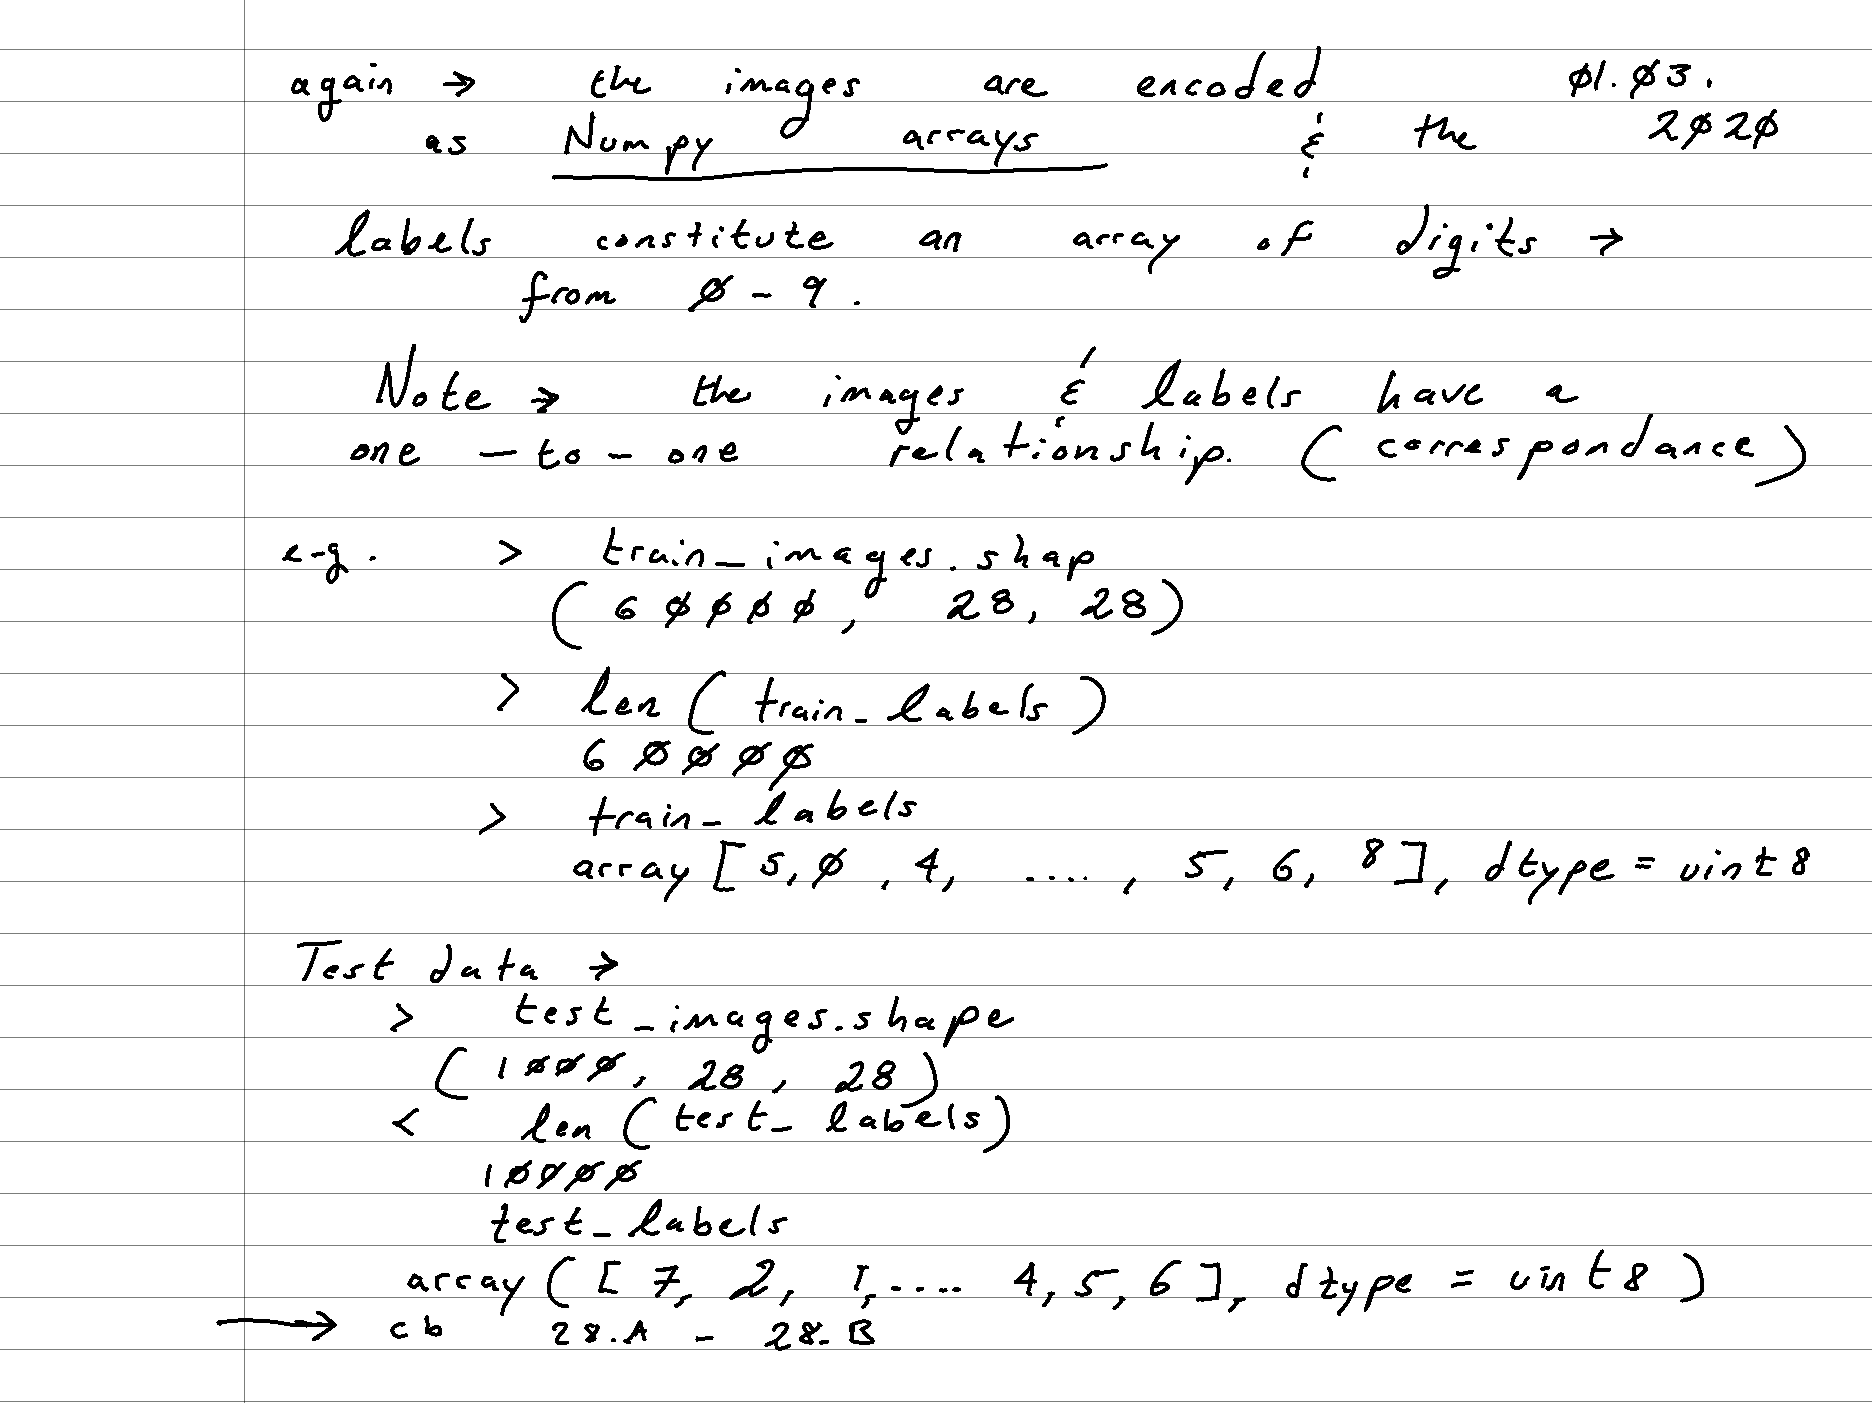 again → the images are encoded Ø1.Ø3.
as Numpy arrays & the 2Ø2Ø
labels constitute an array of digits →
from Ø - 9.
Note → the images & labels have a
one - to - one relationship. (correspondance)
e-g. > train_images.shap
(6ØØØØ, 28, 28)
> len (train_labels)
6ØØØØ
> train_labels
array [5, Ø, 4, ...., 5, 6, 8], dtype = uint8
Test data →
> test_images.shape
(1ØØØ, 28, 28)
< len (test_labels)
1ØØØØ
test_labels
array ([7, 2, 1, .... 4, 5, 6], dtype = uint8)
→ cb 28.A - 28.B